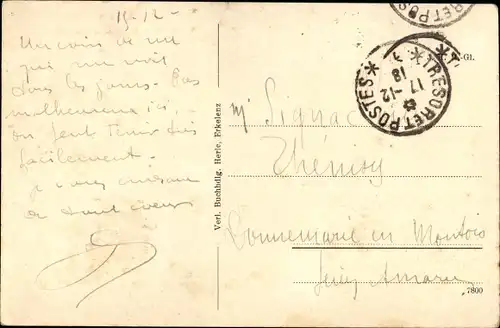 15-12-
un coin de
qui me voit
tous les jours. Pas
malheureux ici
on peut tenir très
facilement.
je vous embrasse
de tout coeur
Verl. Buchhdlg. Herle, Erkelenz
TRESOR ET POSTES
17-12
18
Gl.
Signac
Thénisy
Donnemarie en Montois
Seine
7800